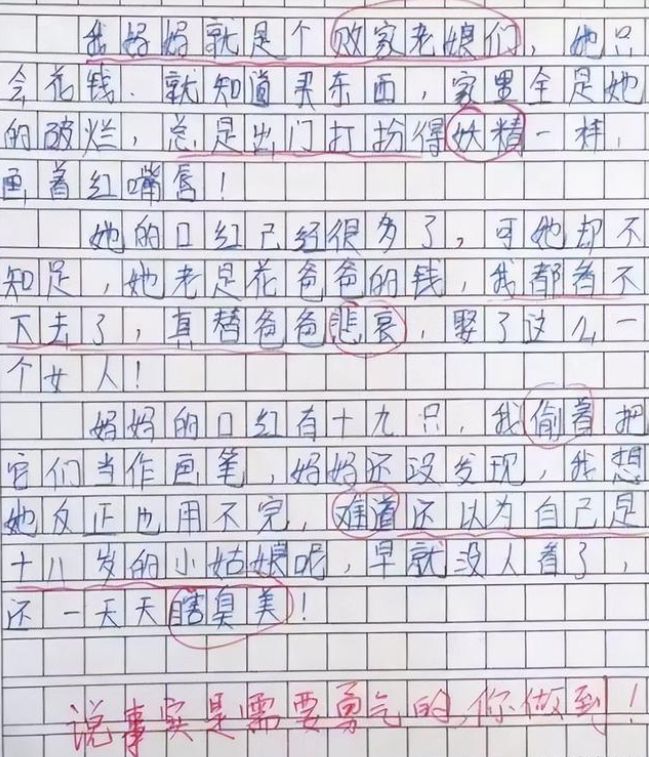 我妈妈就是个败家老娘们，她只
会花钱．就知道买东西，家里全是她
的破烂，总是出门打扮得妖精一样，
画着红嘴唇！
她的口红已经很多了，可她却不
知足，她老是花爸爸的钱，我都看不
下去了，真替爸爸悲哀，娶了这么一
个女人！
妈妈的口红有十九只，我偷着把
它们当作画笔，妈妈还没发现，我想
她反正也用不完，难道还以为自己是
十八岁的小姑娘呢，早就没人看了，
还一天天瞎臭美！
说事实是需要勇气的，你做到！